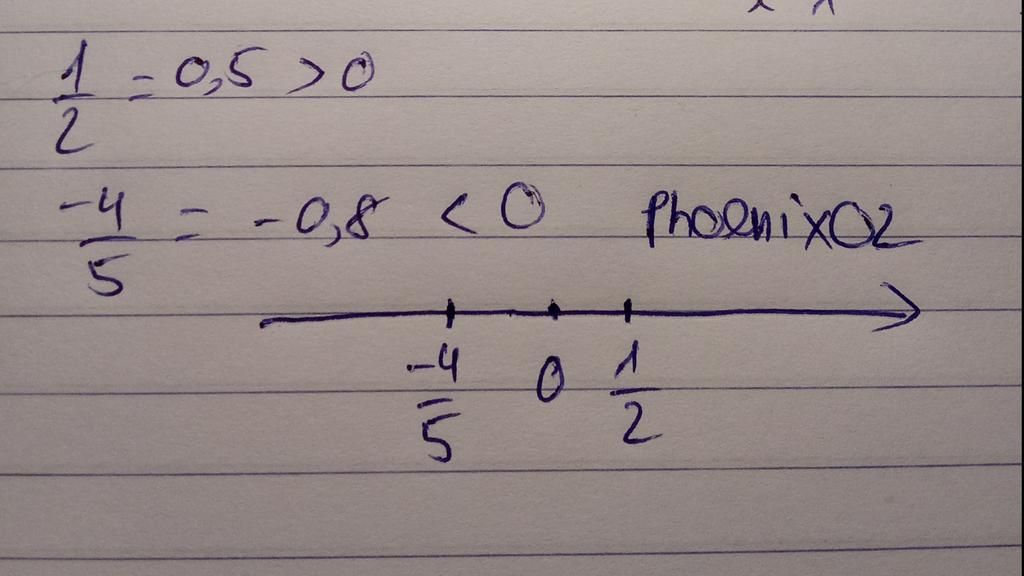 1/2 = 0,5 > 0
-4/5 = -0,8 < 0 PhoenixO2
-4/5 0 1/2